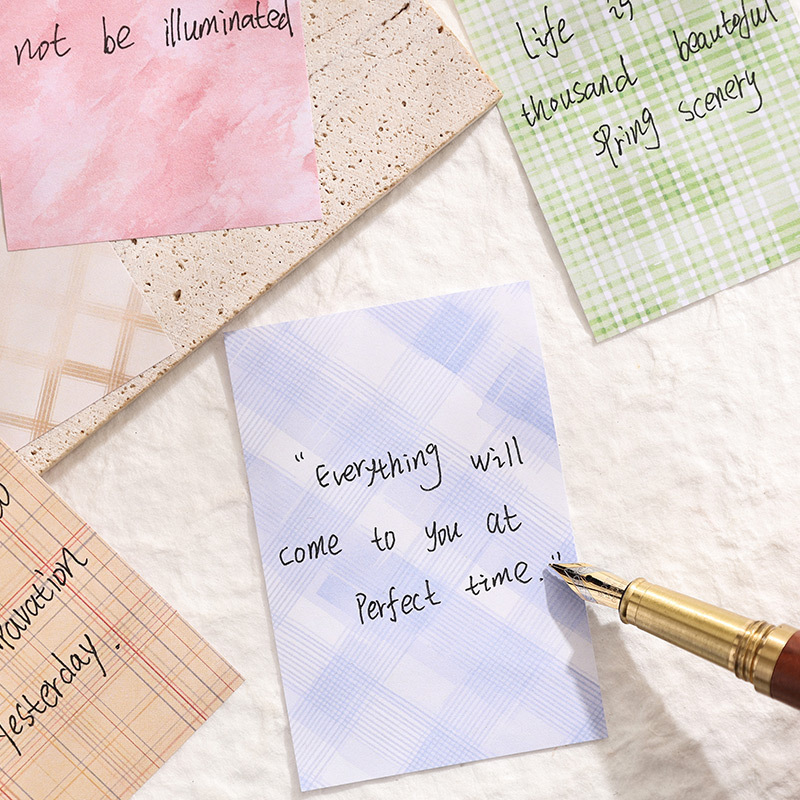 not be illuminated
Life is
thousand beautiful
spring scenery
"Everything will
come to you at
Perfect time."
Yesterday.